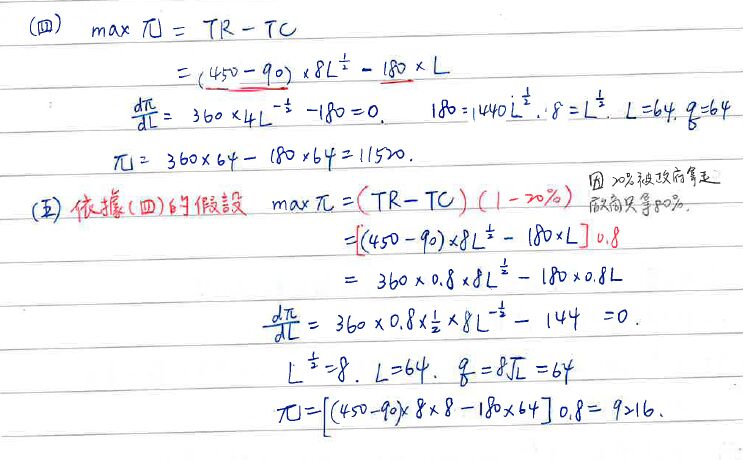 (四) max π = TR - TC
= (450-90) × 8L^{1/2} - 180 × L
dπ/dL = 360 × 4L^{-1/2} - 180 = 0. 180 = 1440L^{-1/2}. 8 = L^{1/2}. L = 64, q = 64
π = 360×64 - 180×64 = 11520.
(五) 依據(四)的假設 max π = (TR - TC)(1-20%) 因20%被政府拿走
廠商只拿80%.
= [(450-90)×8L^{1/2} - 180×L] 0.8
= 360×0.8×8L^{1/2} - 180×0.8L
dπ/dL = 360×0.8×1/2×8L^{-1/2} - 144 = 0.
L^{1/2} = 8. L = 64. q = 8√L = 64
π = [(450-90)×8×8 - 180×64] 0.8 = 9216.